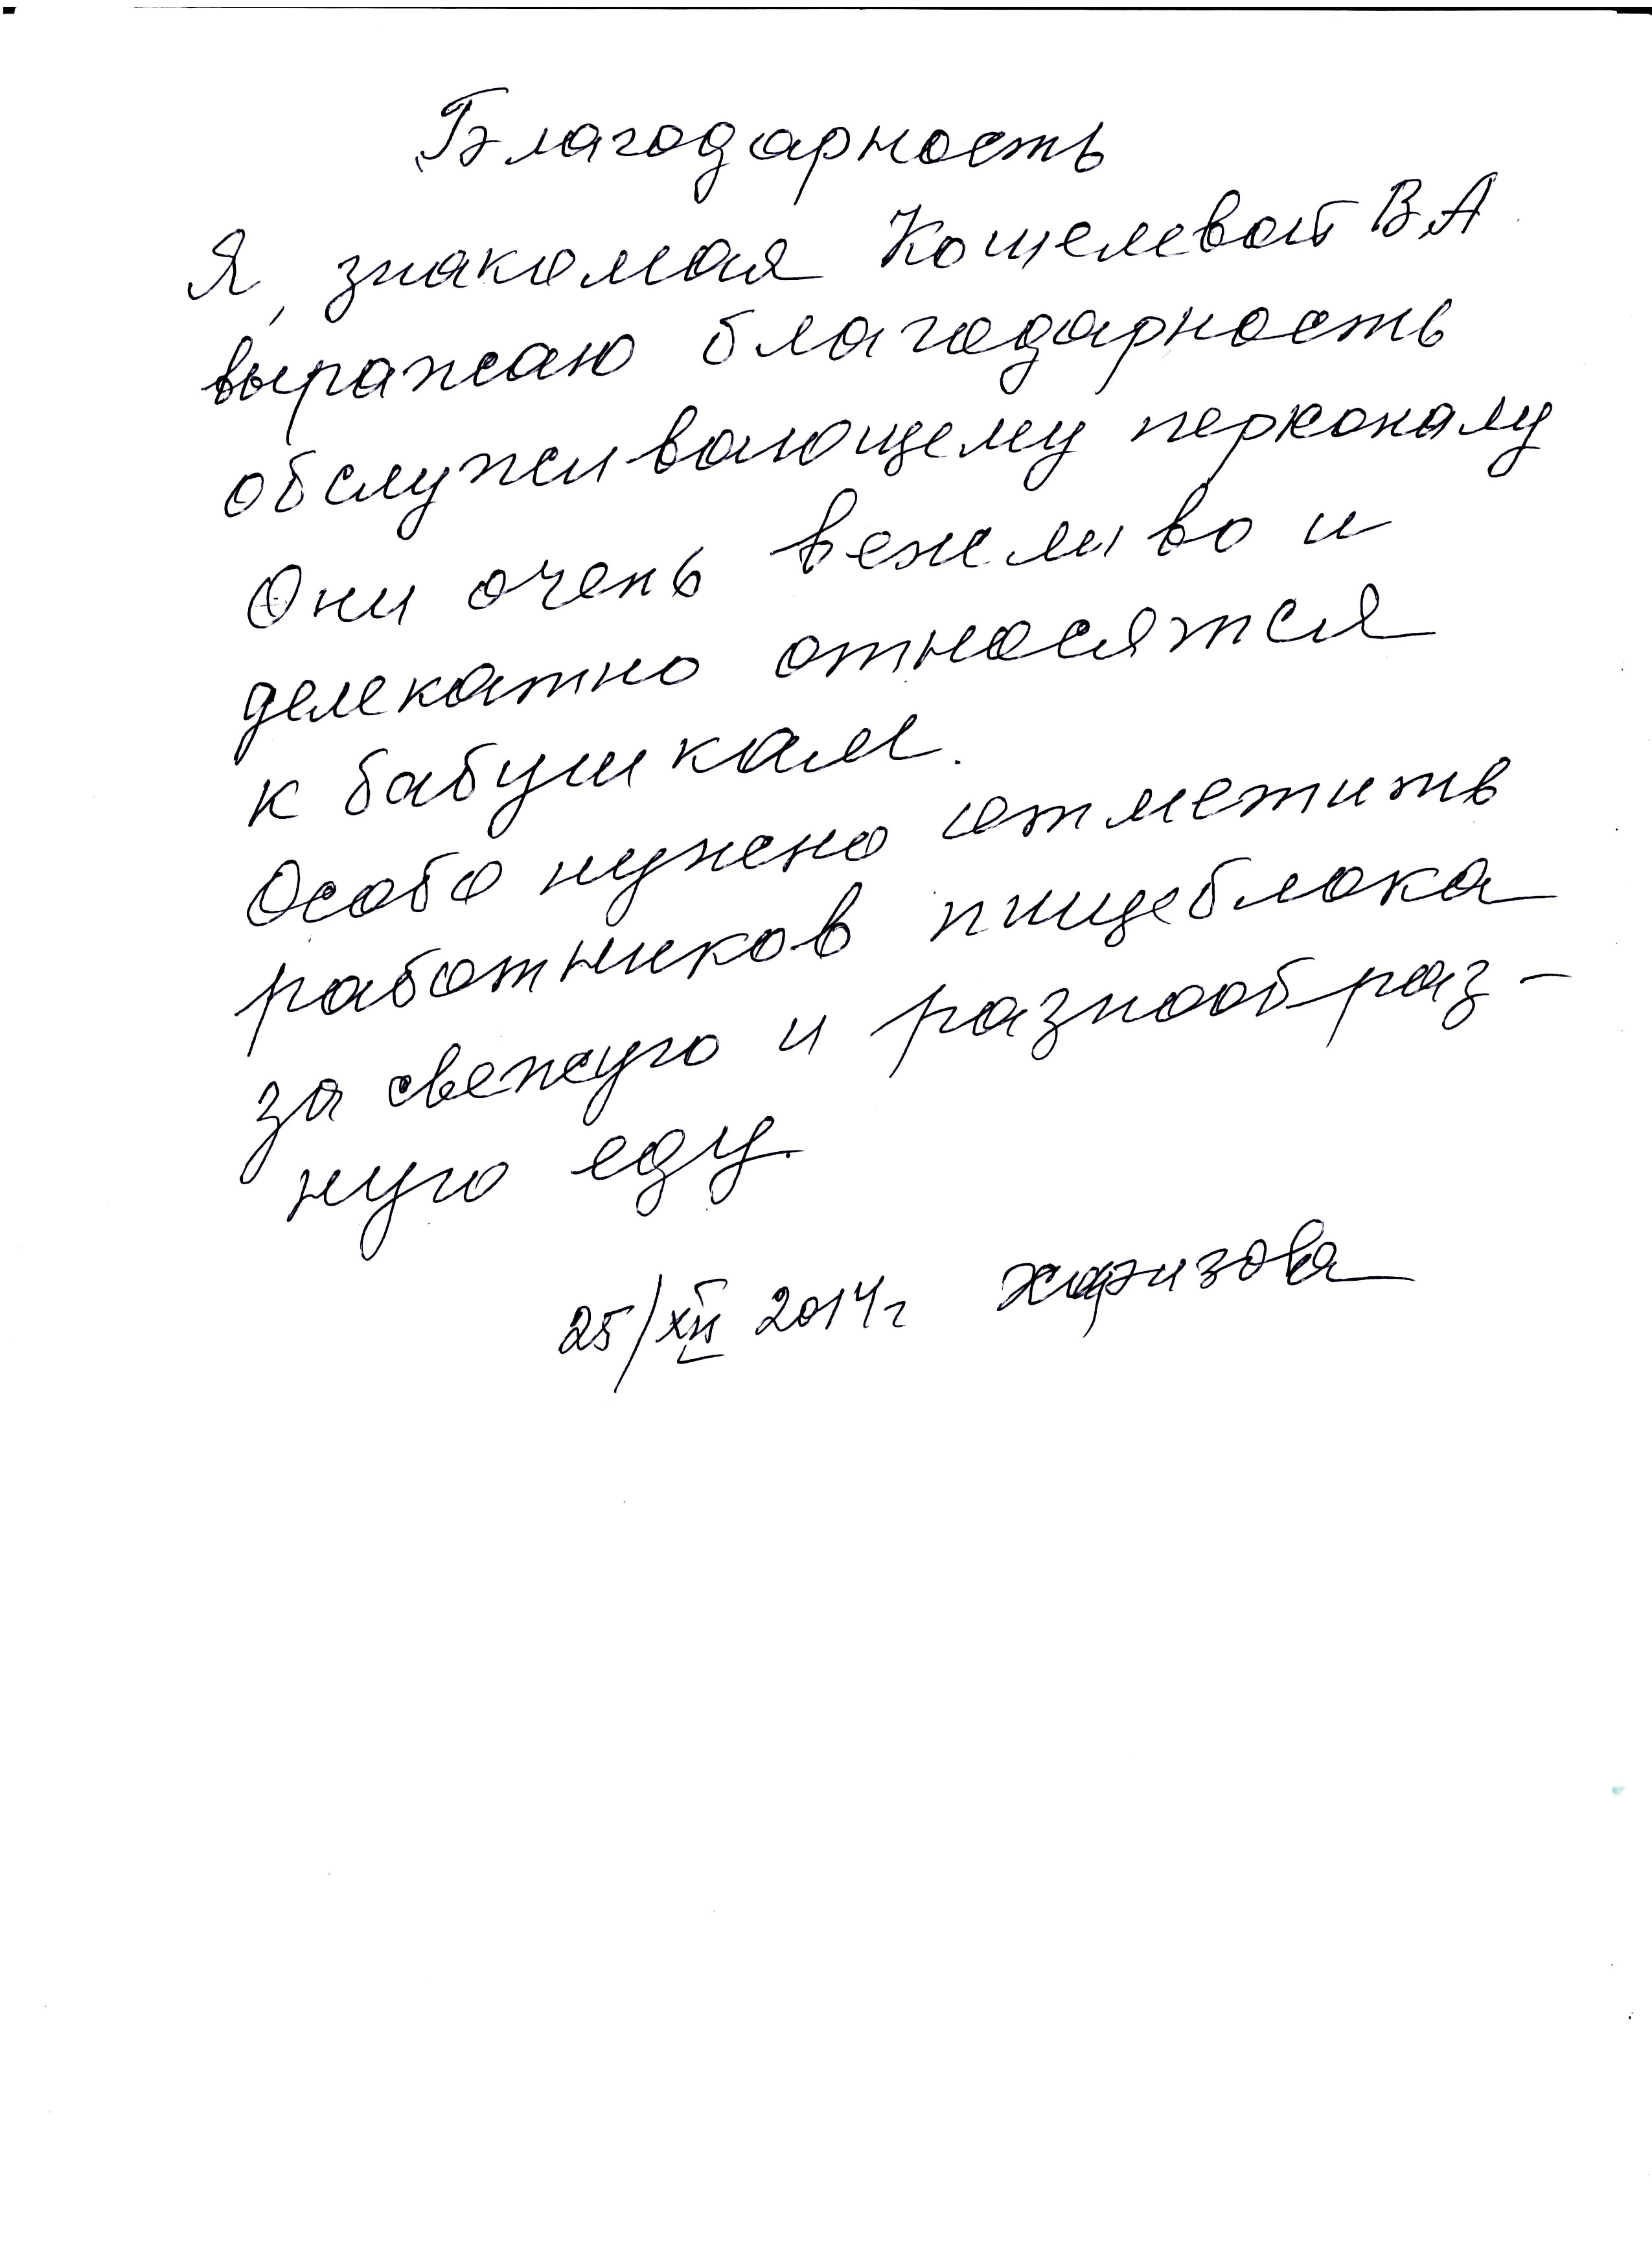 Благодарность
Я, знакомая Кошелевой В.А.
выражаю благодарность
обслуживающему персоналу
Они очень вежливо и
делекатно относятся
к бабушкам.
Особо нужно отметить
работников пищеблока
за свежую и разнообраз-
ную еду.
25/XII 2014г